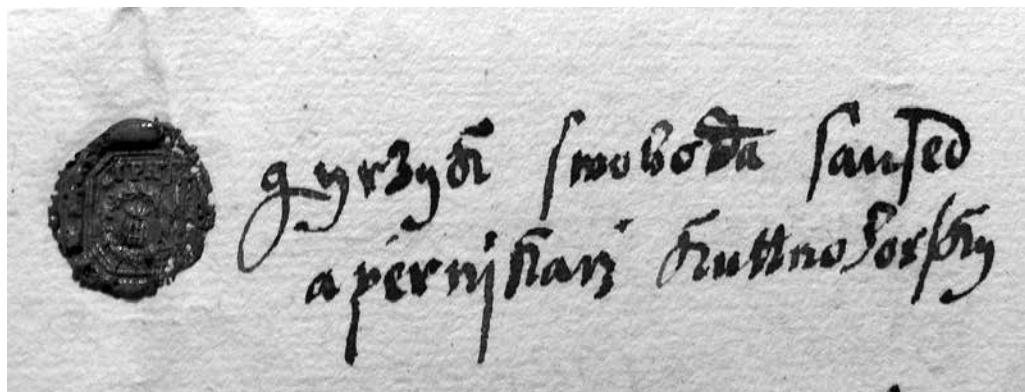 gyrzyk swoboda saused
a pernikarz kuttnohorsky